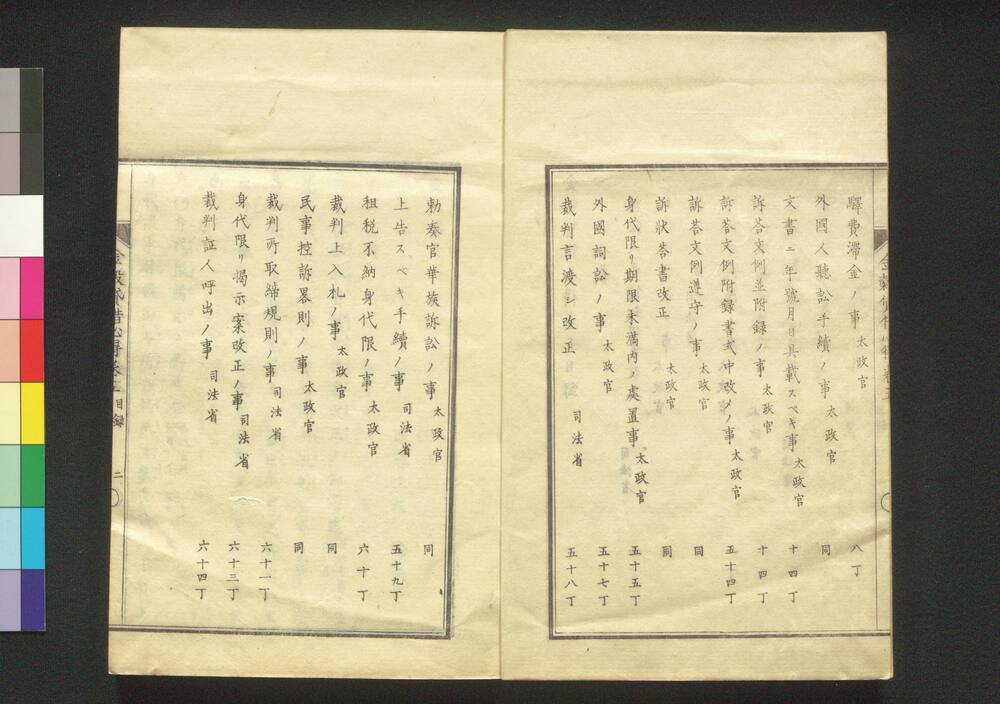 驛費滞金ノ事 太政官 八丁
外國人聽訟手續ノ事 太政官 同
文書ニ年號月日具載スベキ事 太政官 十四丁
訴答文例並附録ノ事 太政官 十四丁
訴答文例附録書式中改メノ事 太政官 五十四丁
訴答文例遵守ノ事 太政官 同
訴状答書改正 太政官 同
身代限リ期限未満内ノ處置事 太政官 五十五丁
外國詞訟ノ事 太政官 五十七丁
裁判言渡シ改正 司法省 五十八丁
勅奏官華族訴訟ノ事 太政官 同
上告スベキ手續ノ事 司法省 五十九丁
租税不納身代限ノ事 太政官 六十丁
裁判上入札ノ事 太政官 同
民事控訴畧則ノ事 太政官 同
裁判所取締規則ノ事 司法省 六十一丁
身代限リ揭示案改正ノ事 司法省 六十三丁
裁判証人呼出ノ事 司法省 六十四丁
目録 二